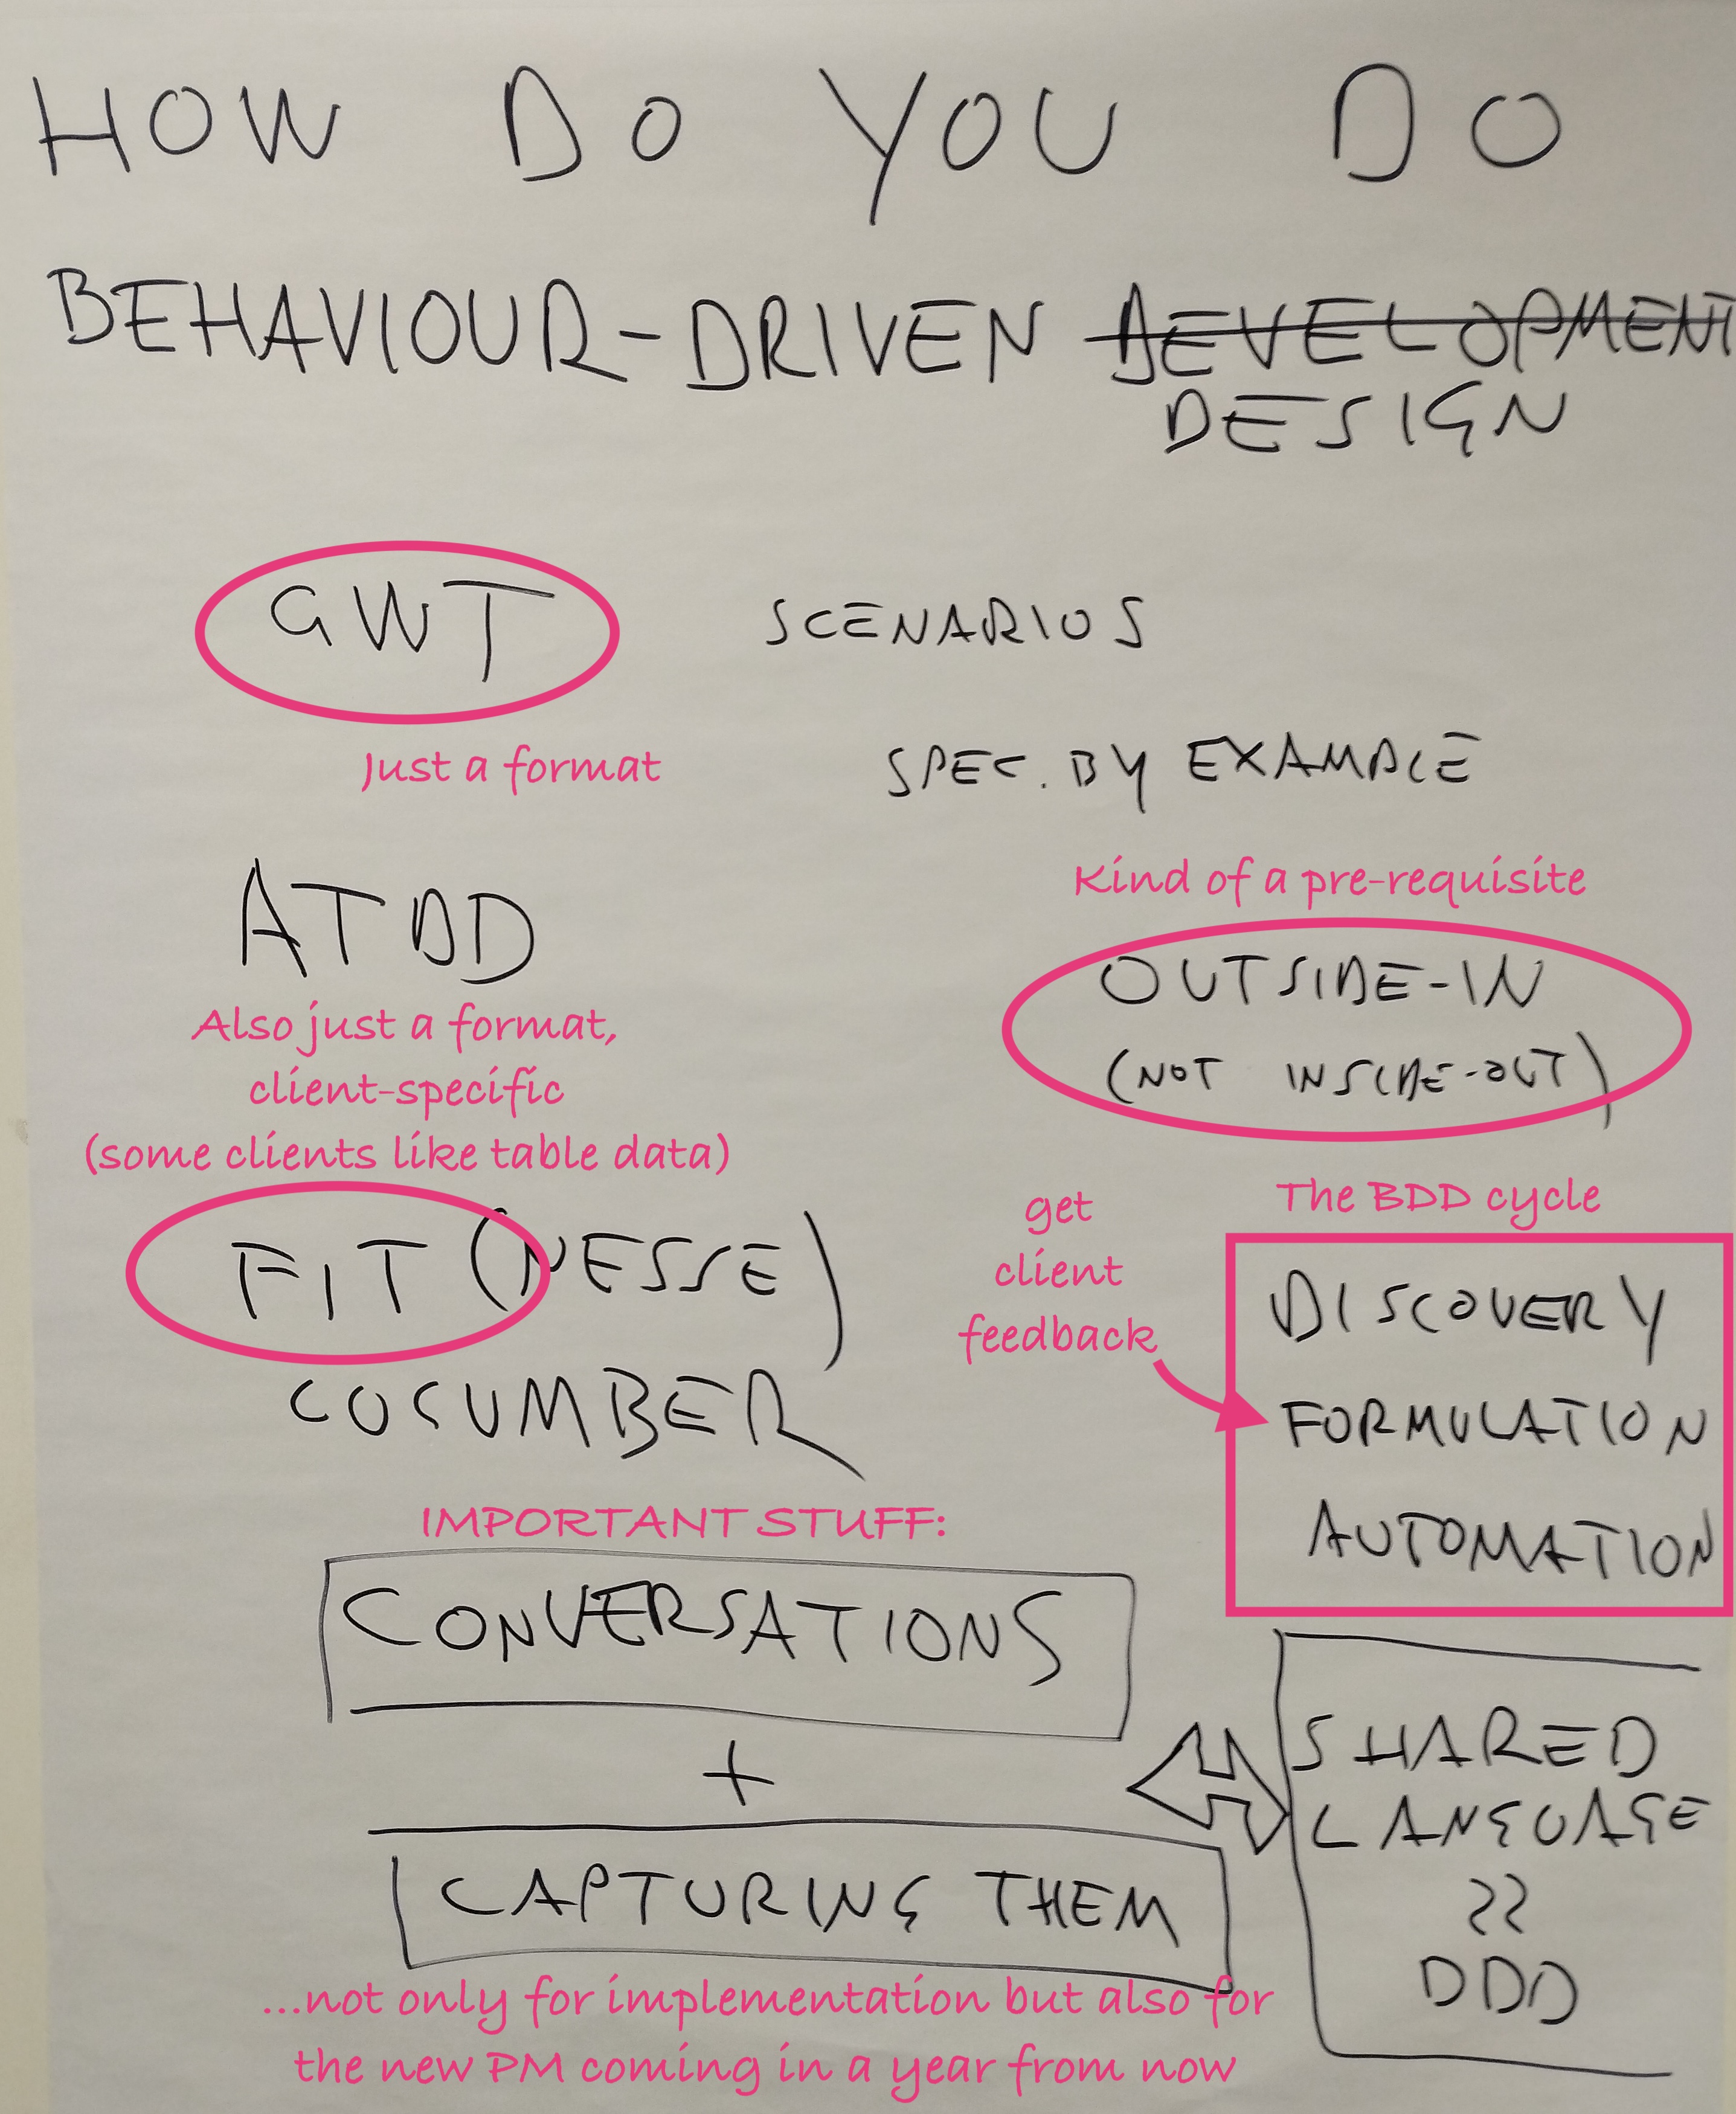 HOW DO YOU DO
BEHAVIOUR-DRIVEN DEVELOPMENT
DESIGN
GWT
SCENARIOS
Just a format
SPEC. BY EXAMPLE
ATDD
Also just a format,
client-specific
(some clients like table data)
Kind of a pre-requisite
OUTSIDE-IN
(NOT INSIDE-OUT)
FIT (NESSE)
CUCUMBER
get
client
feedback
The BDD cycle
DISCOVERY
FORMULATION
AUTOMATION
IMPORTANT STUFF:
CONVERSATIONS
+
CAPTURING THEM
...not only for implementation but also for
the new PM coming in a year from now
SHARED
LANGUAGE
DDD